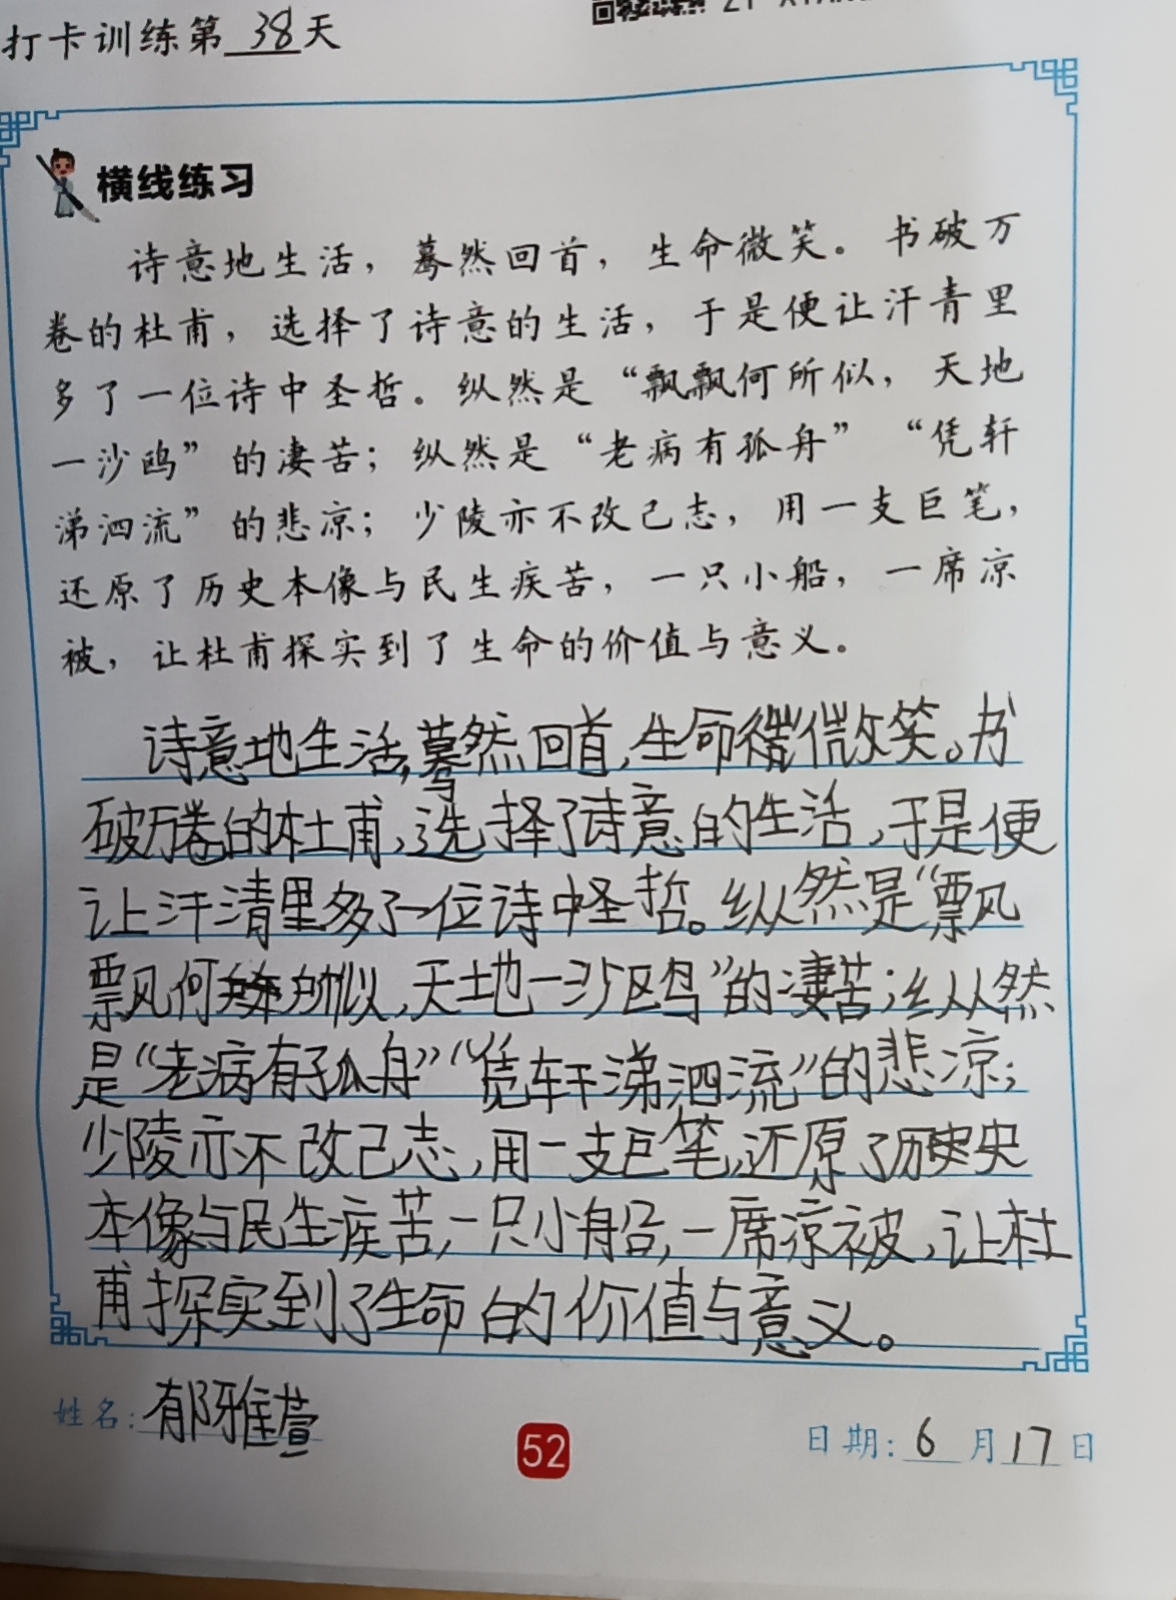 打卡训练第38天
横线练习
诗意地生活，蓦然回首，生命微笑。书破万
卷的杜甫，选择了诗意的生活，于是便让汗青里
多了一位诗中圣哲。纵然是“飘飘何所似，天地
一沙鸥”的凄苦；纵然是“老病有孤舟”“凭轩
涕泗流”的悲凉；少陵亦不改己志，用一支巨笔，
还原了历史本像与民生疾苦，一只小船，一席凉
被，让杜甫探实到了生命的价值与意义。
诗意地生活，蓦然回首，生命微笑。书
破万卷的杜甫，选择了诗意的生活，于是便
让汗清里多了一位诗中圣哲。纵然是“飘
飘何所似，天地一沙鸥”的凄苦；纵然
是“老病有孤舟”“凭轩涕泗流”的悲凉；
少陵亦不改己志，用一支巨笔，还原了历史
本像与民生疾苦，一只小船，一席凉被，让杜
甫探实到了生命的价值与意义。
姓名：郁雅萱
52
日期：6月17日